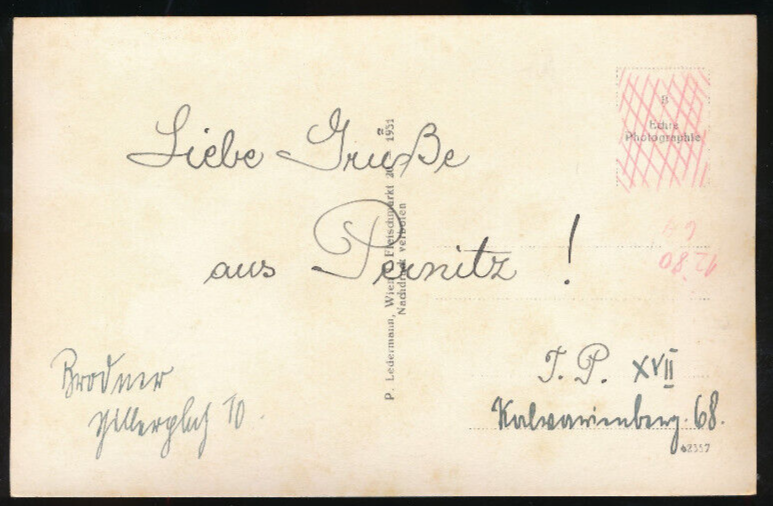 Liebe Grüße
aus Pernitz !
B
Echte
Photographie
P. Ledermann, Wien I, Fleischmarkt 20 – 1931
Nachdruck verboten
12.80
Brodner
10.
J. P. XVII
Kalvarienberg. 68.
62357